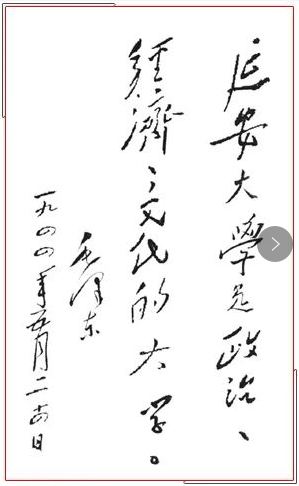 延安大學是政治、
經濟、文化的大学。
毛泽东
一九四四年五月二十四日